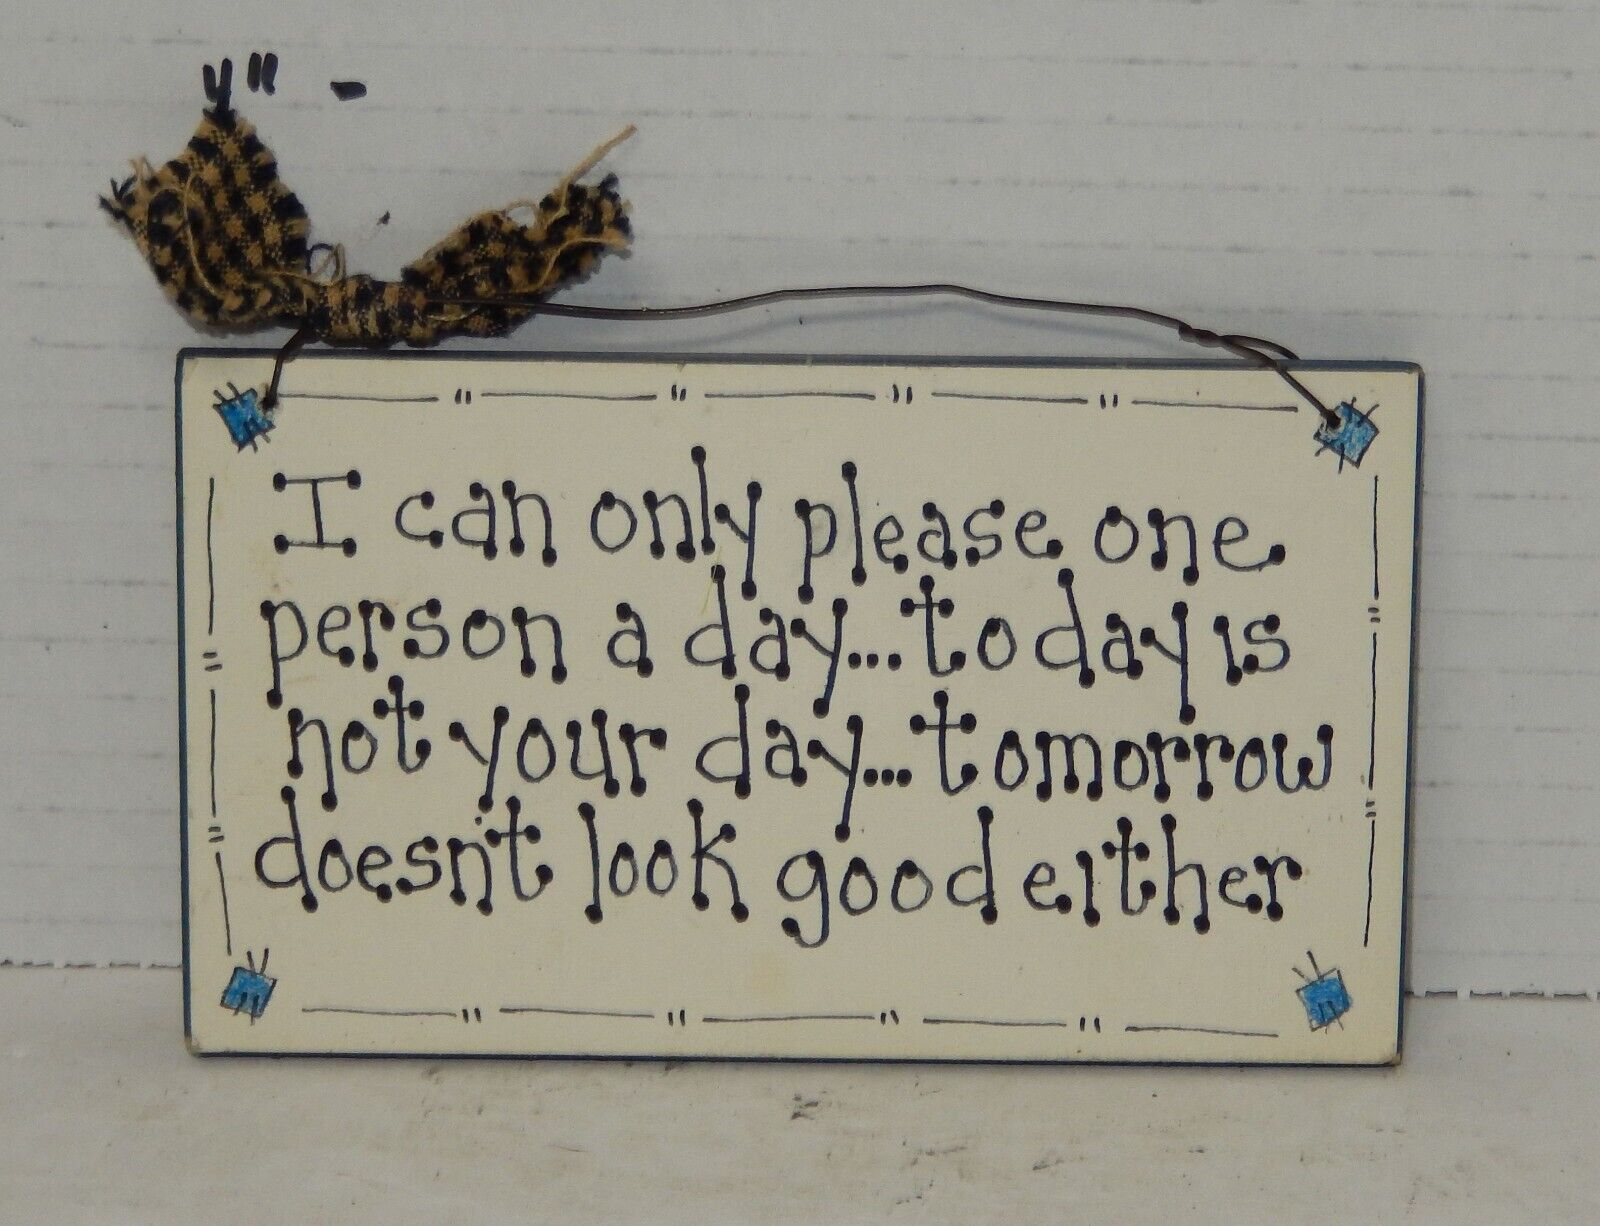 I can only please one
person a day...today is
not your day...tomorrow
doesn't look good either